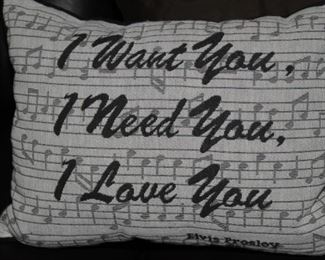 I Want You,
I Need You,
I Love You
Elvis Presley